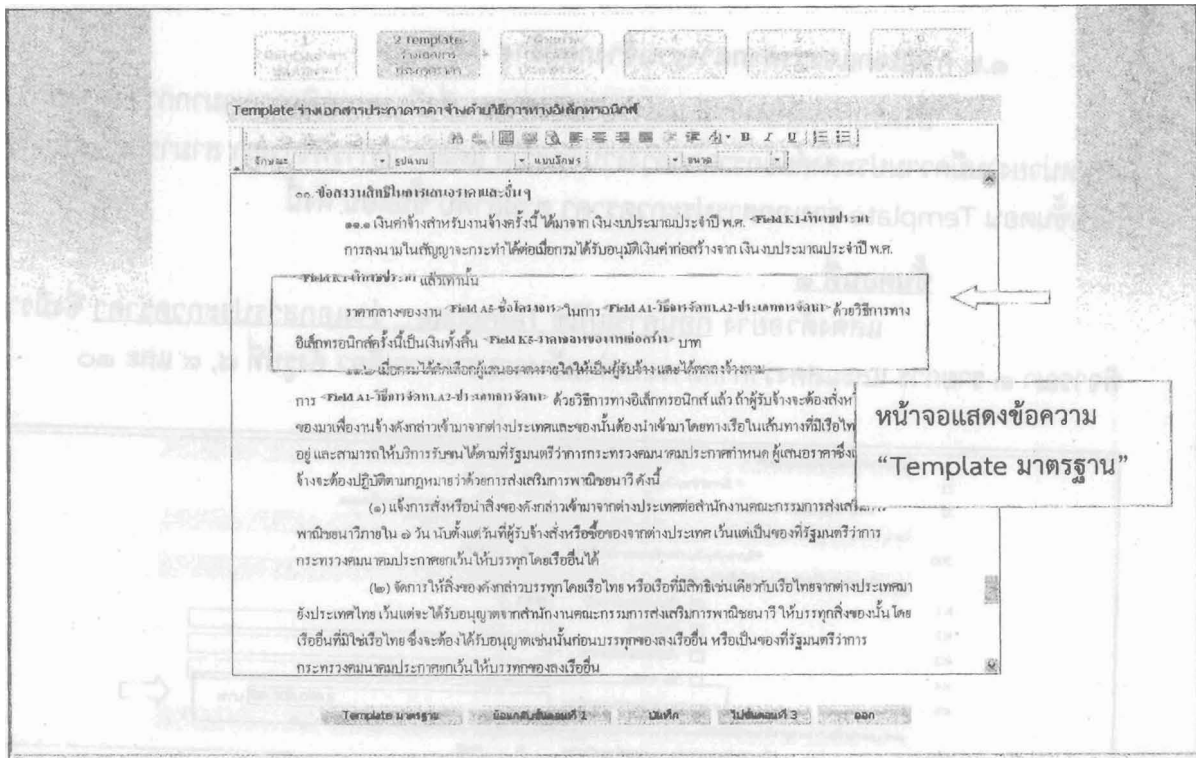 2 Template
ร่างเอกสาร
ประกวดราคา
Template ร่างเอกสารประกวดราคาจ้างด้วยวิธีการทางอิเล็กทรอนิกส์
B I U
ลักษณะ รูปแบบ แบบอักษร ขนาด
๑๐. ข้อสงวนสิทธิในการเสนอราคาและอื่น ๆ
๑๐.๑ เงินค่าจ้างสำหรับงานจ้างครั้งนี้ ได้มาจาก เงินงบประมาณประจำปี พ.ศ. <Field K1-เงินงบประมา
การลงนามในสัญญาจะกระทำได้ต่อเมื่อกรมได้รับอนุมัติเงินค่าก่อสร้างจาก เงินงบประมาณประจำปี พ.ศ.
แล้วเท่านั้น
ราคากลางของงาน <Field A5-ชื่อโครงการ> ในการ <Field A1-วิธีการจัดหาA2-ประเภทการจัดหา> ด้วยวิธีการทาง
อิเล็กทรอนิกส์ครั้งนี้เป็นเงินทั้งสิ้น <Field K5-ราคากลางของงานก่อสร้าง> บาท
๑๐.๒ เมื่อกรมได้คัดเลือกผู้เสนอราคารายใดให้เป็นผู้รับจ้าง และได้ตกลงจ้างตาม
การ <Field A1-วิธีการจัดหาA2-ประเภทการจัดหา> ด้วยวิธีการทางอิเล็กทรอนิกส์ แล้ว ถ้าผู้รับจ้างจะต้องสั่งห
ของมาเพื่องานจ้างดังกล่าวเข้ามาจากต่างประเทศและของนั้นต้องนำเข้ามาโดยทางเรือในเส้นทางที่มีเรือไท
อยู่ และสามารถให้บริการรับขนได้ตามที่รัฐมนตรีว่าการกระทรวงคมนาคมประกาศกำหนด ผู้เสนอราคาซึ่งเ
จ้างจะต้องปฏิบัติตามกฎหมายว่าด้วยการส่งเสริมการพาณิชยนาวี ดังนี้
(๑) แจ้งการสั่งหรือนำสิ่งของดังกล่าวเข้ามาจากต่างประเทศต่อสำนักงานคณะกรรมการส่งเสริมการ
พาณิชยนาวีภายใน ๗ วัน นับตั้งแต่วันที่ผู้รับจ้างสั่งหรือซื้อของจากต่างประเทศ เว้นแต่เป็นของที่รัฐมนตรีว่าการ
กระทรวงคมนาคมประกาศยกเว้นให้บรรทุกโดยเรืออื่นได้
(๒) จัดการให้สิ่งของดังกล่าวบรรทุกโดยเรือไทย หรือเรือที่มีสิทธิเช่นเดียวกับเรือไทยจากต่างประเทศมา
ยังประเทศไทย เว้นแต่จะได้รับอนุญาตจากสำนักงานคณะกรรมการส่งเสริมการพาณิชยนาวี ให้บรรทุกสิ่งของนั้น โดย
เรืออื่นที่มิใช่เรือไทย ซึ่งจะต้องได้รับอนุญาตเช่นนั้นก่อนบรรทุกของลงเรืออื่น หรือเป็นของที่รัฐมนตรีว่าการ
กระทรวงคมนาคมประกาศยกเว้นให้บรรทุกของลงเรืออื่น
หน้าจอแสดงข้อความ
“Template มาตรฐาน”
Template มาตรฐาน ย้อนกลับขั้นตอนที่ 1 บันทึก ไปขั้นตอนที่ 3 ออก